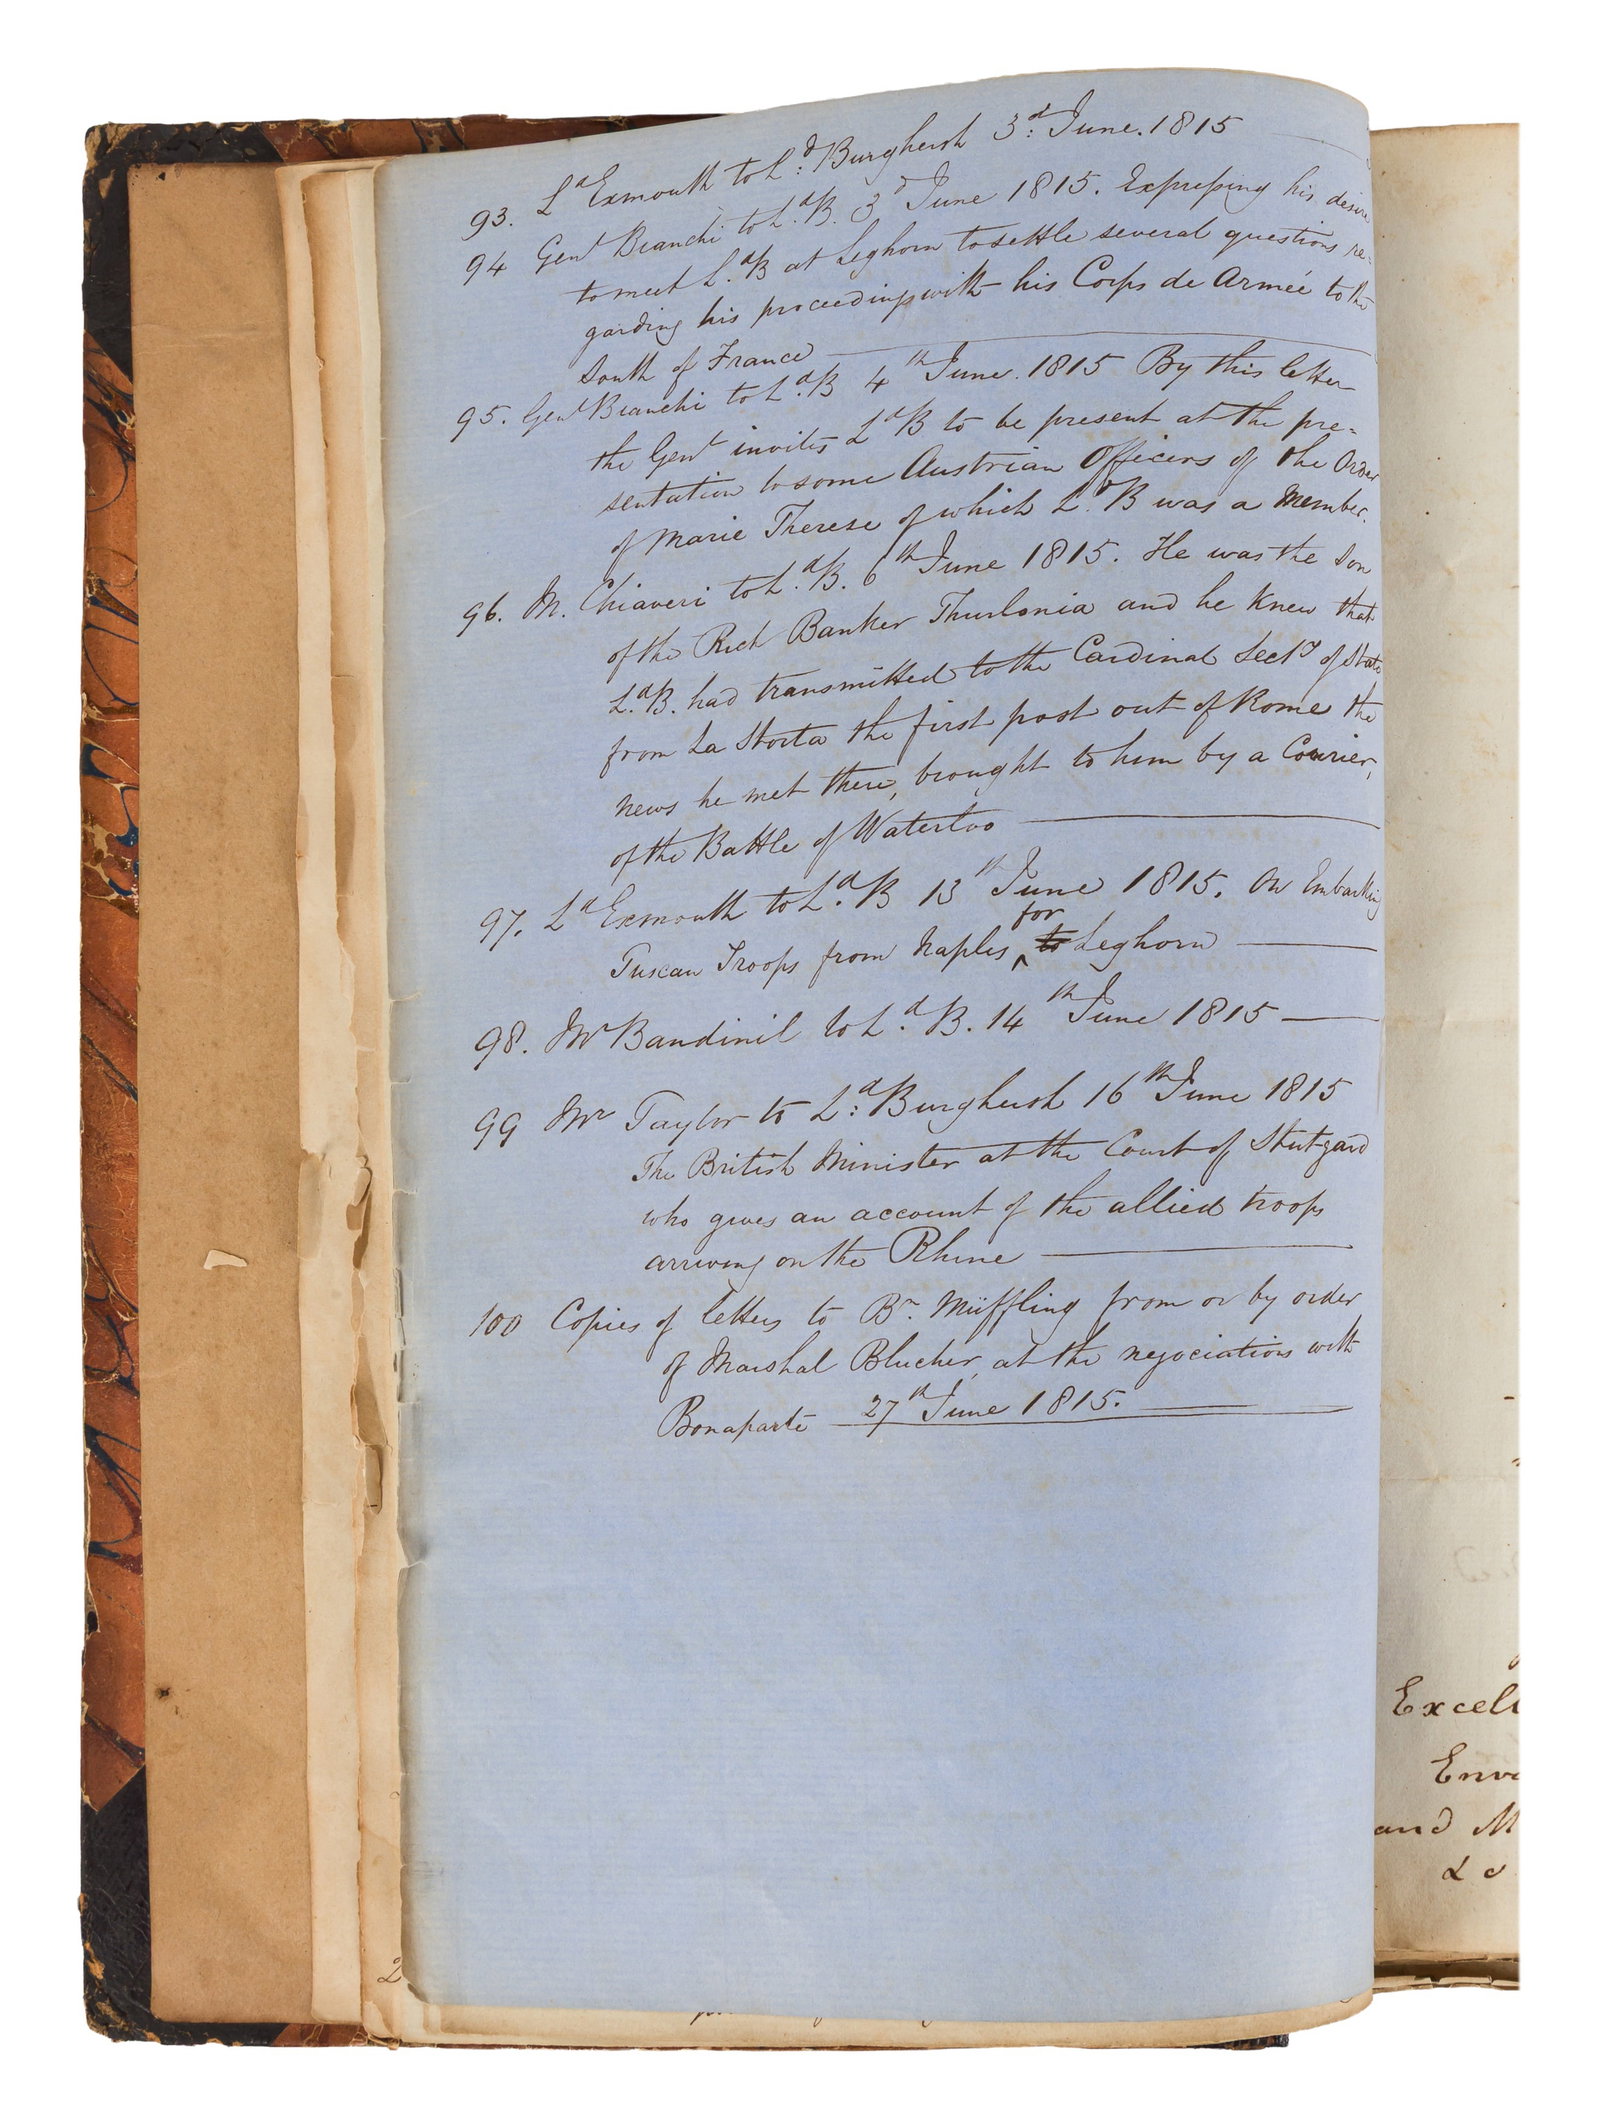 93. Ld Exmouth to Ld: Burghersh 3d: June. 1815
94 Genl Bianchi to Ld. B. 3d June 1815. Expressing his desire
to meet Ld. B at Leghorn to settle several questions re=
garding his proceedings with his Corps de Armée to the
South of France
95. Genl Bianchi to Ld. B 4th June. 1815 By this letter
the Genl invites Ld B to be present at the pre=
sentation to some Austrian Officers of the Order
of Marie Therese of which Ld. B was a Member.
96. M. Chiaveri to Ld. B. 6th June 1815. He was the Son
of the Rich Banker Thurlonia and he Knew that
Ld. B. had transmitted to the Cardinal Secty of State
from La Storta the first post out of Rome the
news he met there, brought to him by a Courier,
of the Battle of Waterloo
97. Ld Exmouth to Ld. B 13th June 1815. On Embarking
Tuscan Troops from Naples for to Leghorn
98. Mr Bandinil to Ld. B. 14th June 1815
99 Mr Taylor to Ld: Burghersh 16th June 1815
The British Minister at the Court of Stutgard
who gives an account of the allied troops
arriving on the Rhine
100 Copies of letters to Bn. Müffling from or by order
of Marshal Blucher, at the negociations with
Bonaparte 27th June 1815.
Excell
Env
and M
2